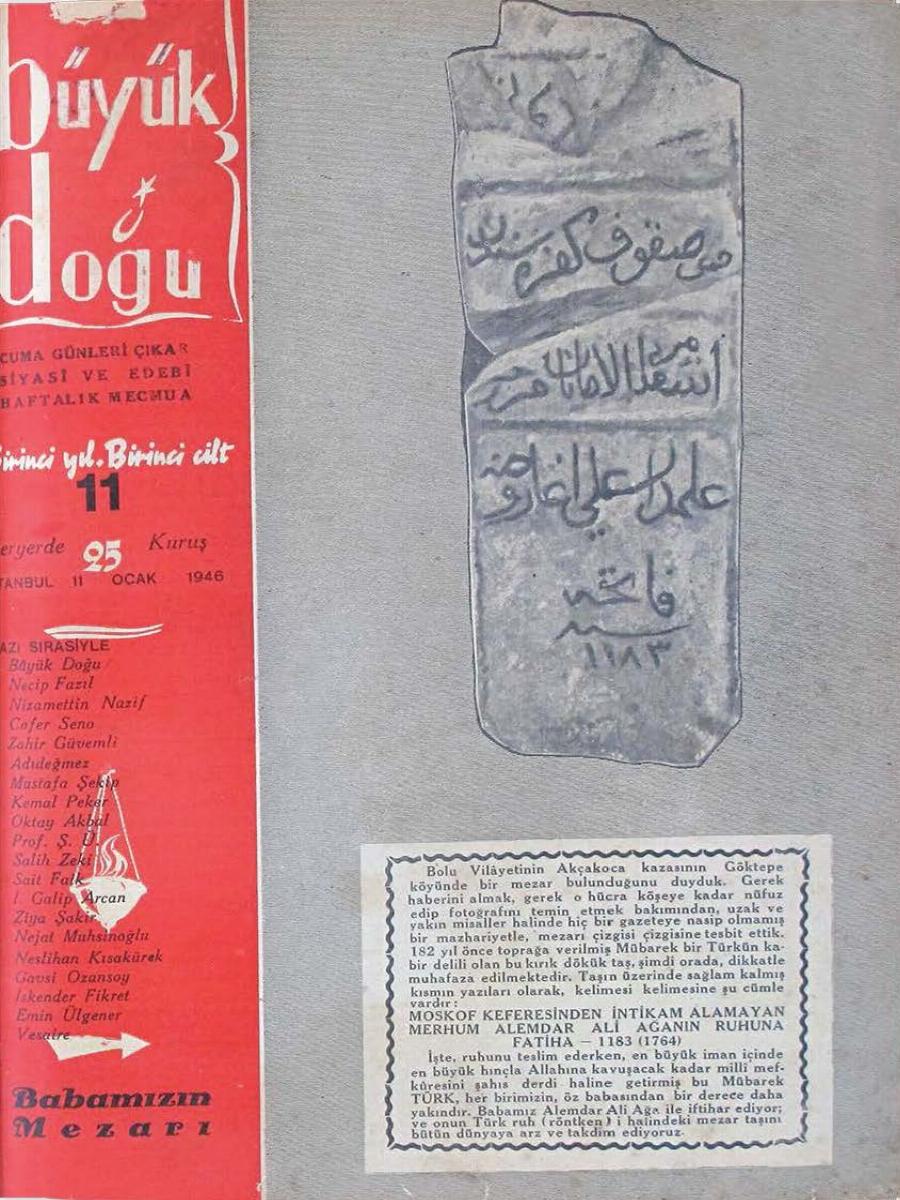 büyük
doğu
CUMA GÜNLERİ ÇIKAR
SİYASİ VE EDEBİ
HAFTALIK MECMUA
Birinci yıl. Birinci cilt
11
eryerde 25 Kuruş
TANBUL 11 OCAK 1946
AZI SIRASİYLE
Büyük Doğu
Necip Fazıl
Nizamettin Nazif
Cafer Seno
Zahir Güvemli
Adıdeğmez
Mustafa Şekip
Kemal Peker
Oktay Akbal
Prof. Ş. Ü.
Salih Zeki
Sait Faik
İ. Galip Arcan
Ziya Şakir
Nejat Muhsinoğlu
Neslihan Kısakürek
Gavsi Ozansoy
İskender Fikret
Emin Ülgener
Vesaire
Babamızın
Mezarı
صقوف كفره سندن
علمدار علي اغا روحنه
فاتحه
سنه
١١٨٣
Bolu Vilâyetinin Akçakoca kazasının Göktepe
köyünde bir mezar bulunduğunu duyduk. Gerek
haberini almak, gerek o hücra köşeye kadar nüfuz
edip fotoğrafını temin etmek bakımından, uzak ve
yakın misaller halinde hiç bir gazeteye nasip olmamış
bir mazhariyetle, mezarı çizgisi çizgisine tesbit ettik.
182 yıl önce toprağa verilmiş Mübarek bir Türkün ka-
bir delili olan bu kırık dökük taş, şimdi orada, dikkatle
muhafaza edilmektedir. Taşın üzerinde sağlam kalmış
kısmın yazıları olarak, kelimesi kelimesine şu cümle
vardır:
MOSKOF KEFERESİNDEN İNTİKAM ALAMAYAN
MERHUM ALEMDAR ALİ AĞANIN RUHUNA
FATİHA — 1183 (1764)
İşte, ruhunu teslim ederken, en büyük iman içinde
en büyük hınçla Allahına kavuşacak kadar milli mef-
kûresini şahıs derdi haline getirmiş bu Mübarek
TÜRK, her birimizin, öz babasından bir derece daha
yakındır. Babamız Alemdar Ali Ağa ile iftihar ediyor;
ve onun Türk ruh (röntken) i halindeki mezar taşını
bütün dünyaya arz ve takdim ediyoruz.